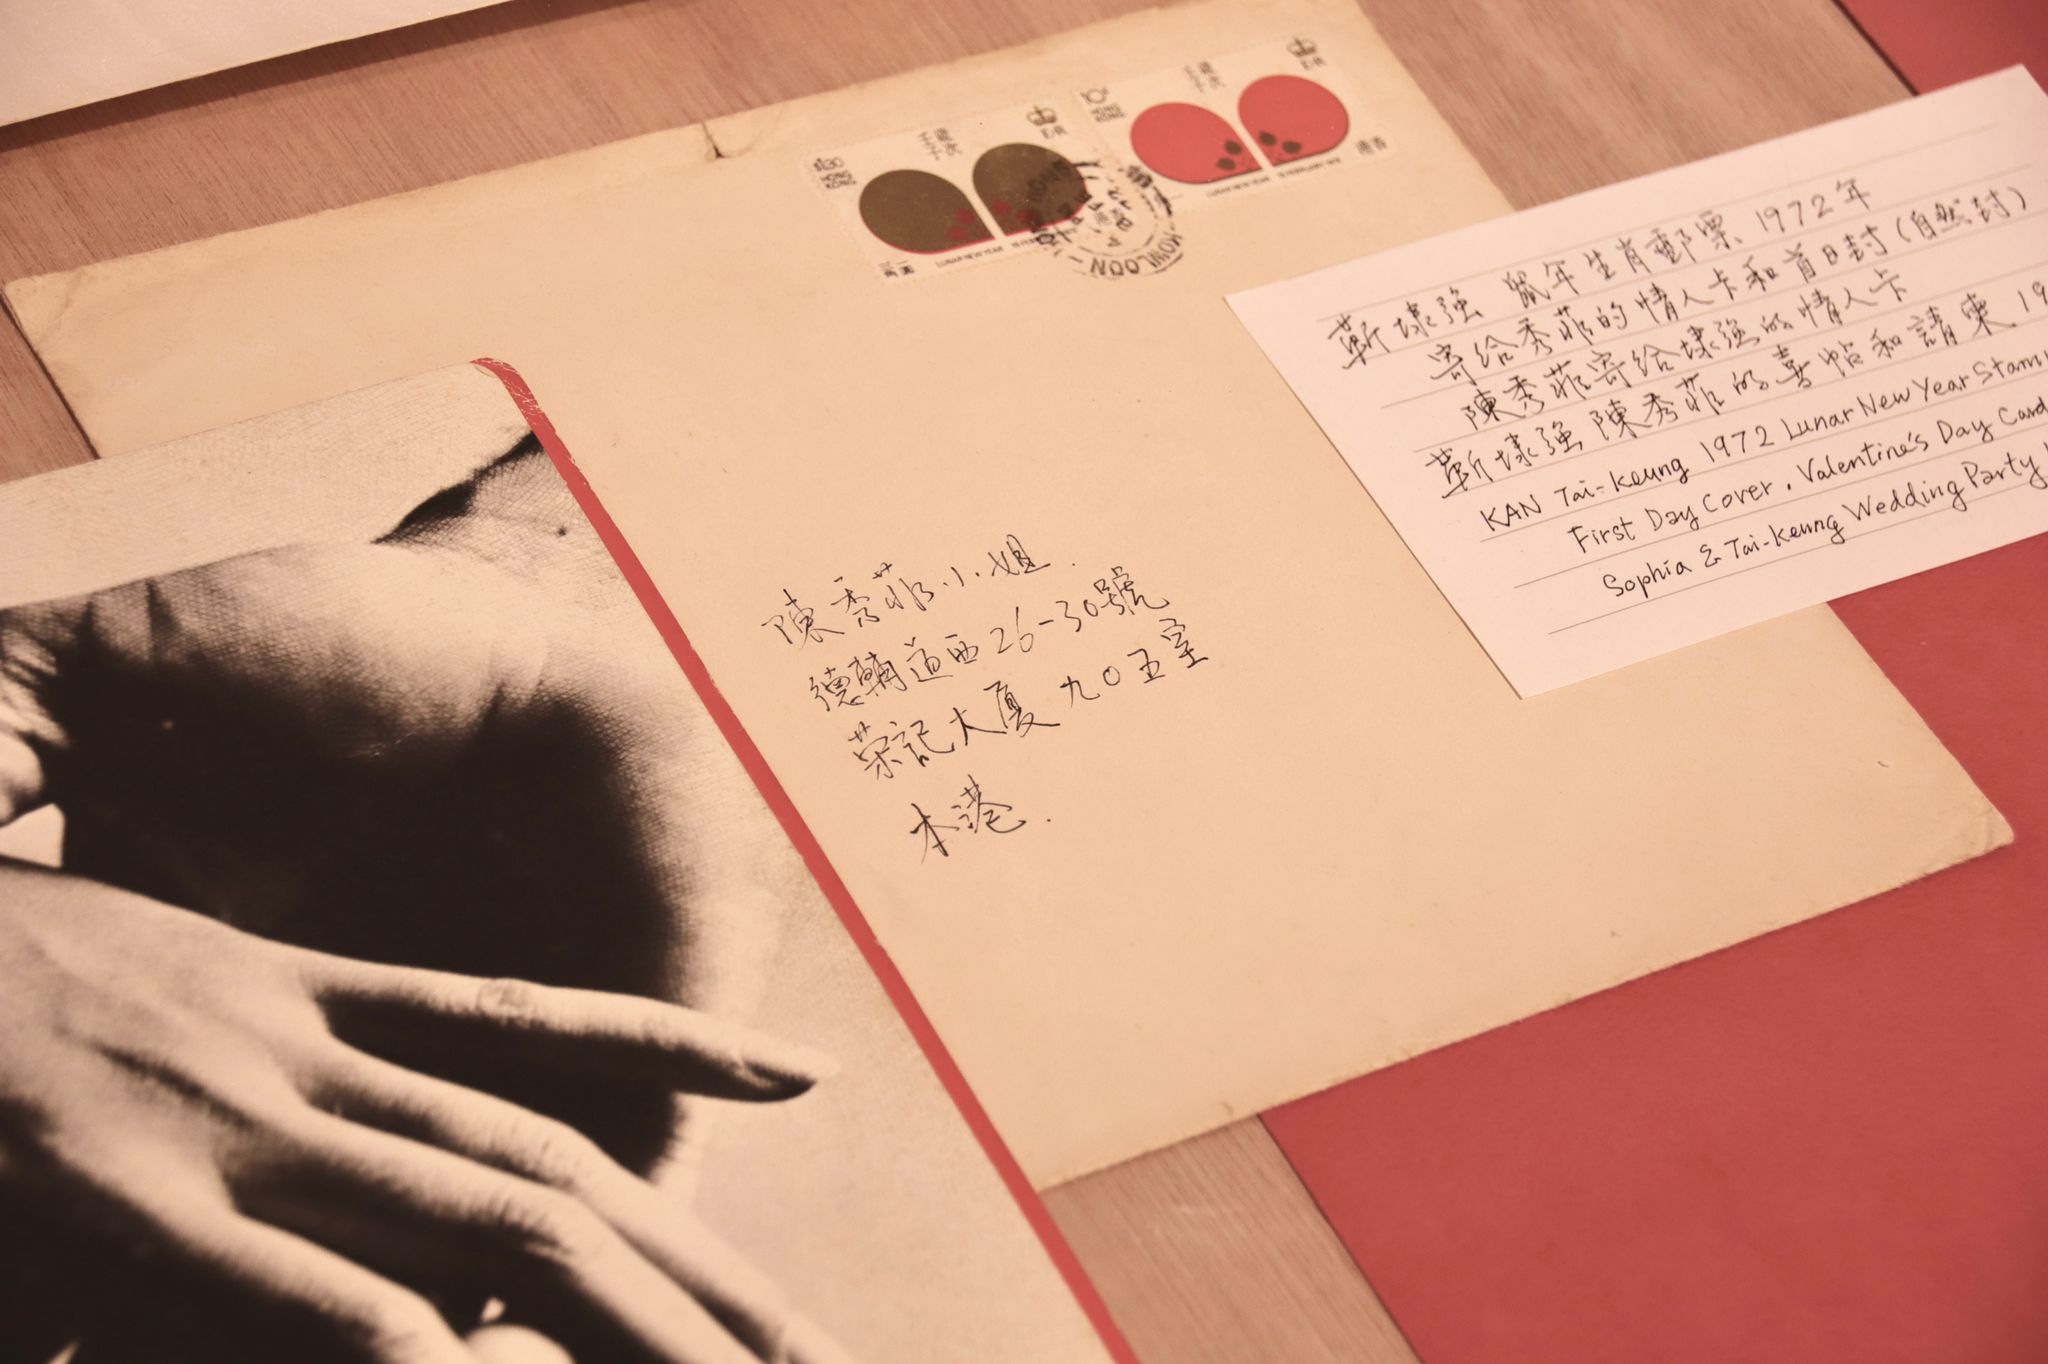 LUNAR NEW YEAR
LUNAR NEW YEAR
KOWLOON
陳秀菲小姐.
德輔道西26-30號
榮記大厦九〇五室
本港.
靳埭強 鼠年生肖郵票 1972年
寄給秀菲的情人卡和首日封(自然封)
陳秀菲寄給埭強的情人卡
靳埭強 陳秀菲的喜帖和請柬 19
KAN Tai-Keung 1972 Lunar New Year Stam
First Day Cover, Valentine's Day Card
Sophia & Tai-Keung Wedding Party